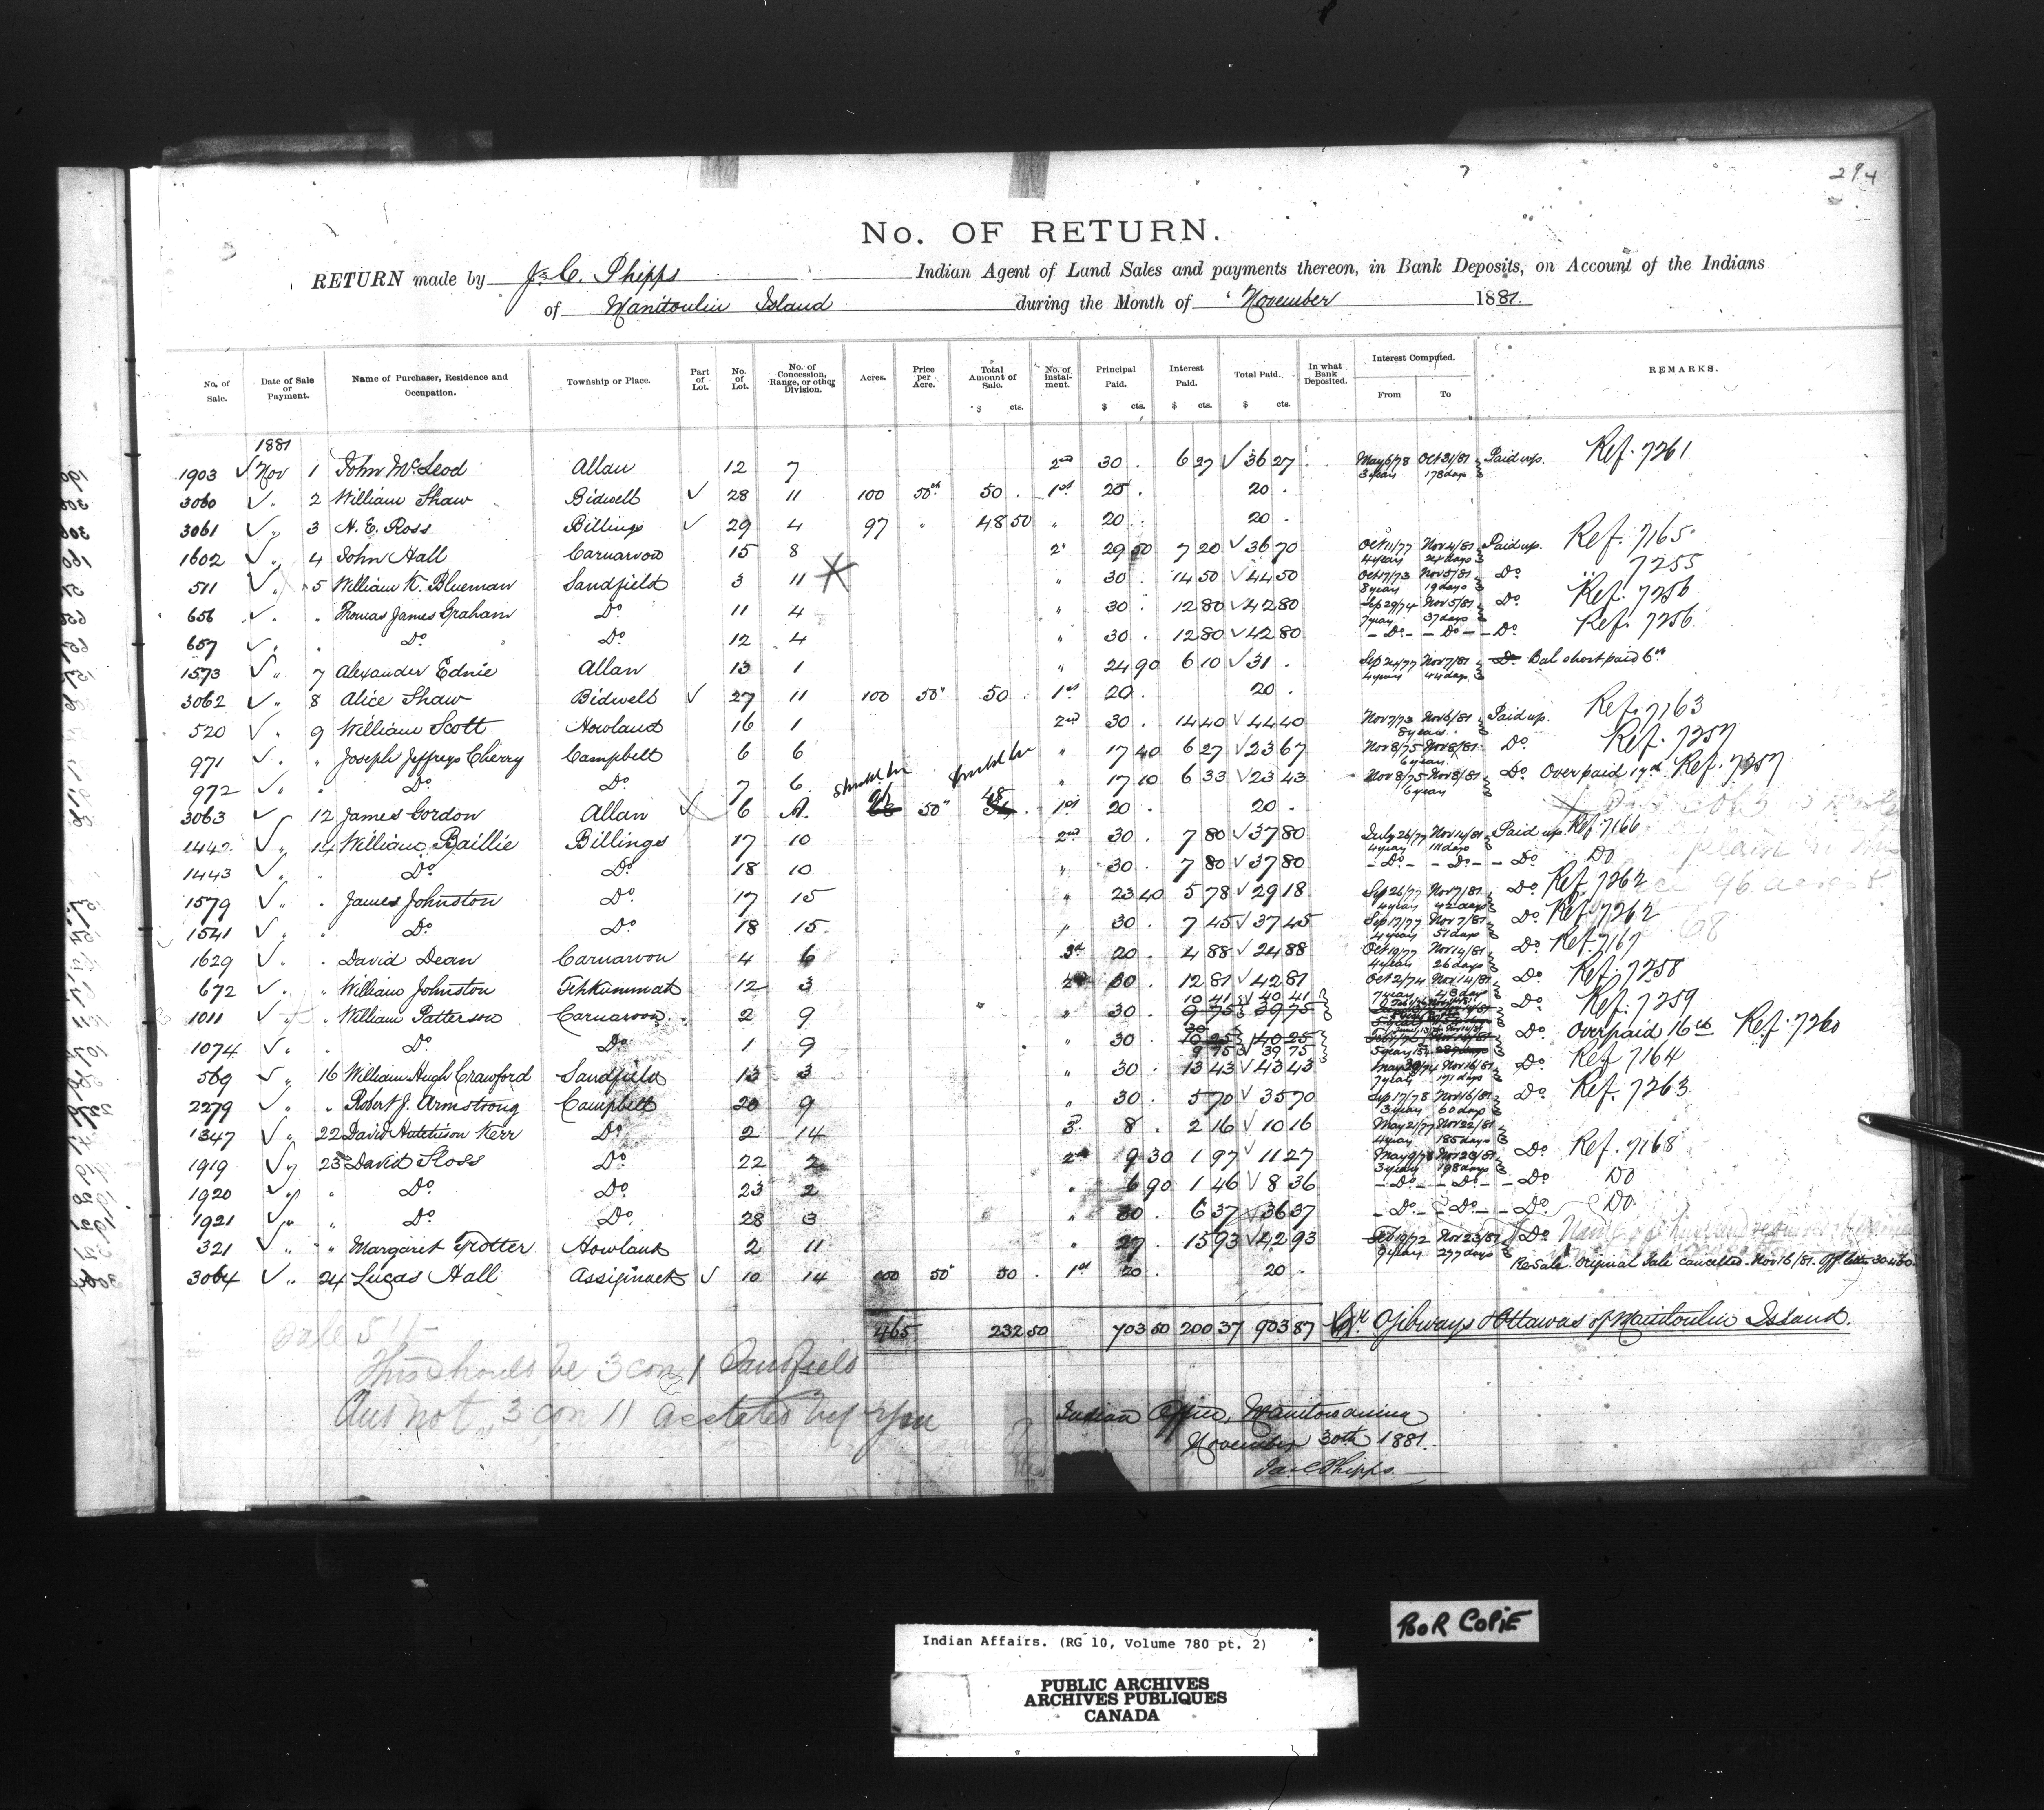 294
No. OF RETURN.
RETURN made by Jas C. Phipps Indian Agent of Land Sales and payments thereon, in Bank Deposits, on Account of the Indians
of Manitoulin Island during the Month of November 1881.
No. of Sale. Date of Sale or Payment. Name of Purchaser, Residence and Occupation. Township or Place. Part of Lot. No. of Lot. No. of Concession, Range, or other Division. Acres. Price per Acre. Total Amount of Sale. $ cts. No. of Instalment. Principal Paid. $ cts. Interest Paid. $ cts. Total Paid. $ cts. In what Bank Deposited. Interest Computed. From To REMARKS.
1881
1903 ✓ Nov 1 John McLeod Allan 12 7 2nd 30 . 6 27 ✓ 36 27 May 6/78 Oct 31/81 3 years 178 days Paid up. Ref. 7261
3060 ✓ " 2 William Shaw Bidwell ✓ 28 11 100 50cts 50 . 1st 20 . 20 .
3061 ✓ " 3 N. E. Ross Billings ✓ 29 4 97 " 48 50 " 20 . 20 .
1602 ✓ " 4 John Hall Carnarvon 15 8 2" 29 50 7 20 ✓ 36 70 Oct 11/77 Nov 4/81 4 years 24 days Paid up. Ref. 7165
511 ✓ " 5 William K. Blueman Sandfield 3 11 " 30 . 14 50 ✓ 44 50 Oct 17/73 Nov 5/81 8 years 19 days Do " 7255
656 ✓ " " Thomas James Graham Do 11 4 " 30 . 12 80 ✓ 42 80 Sep 29/74 Nov 5/81 7 years 37 days Do Ref. 7256
657 ✓ " " Do Do 12 4 " 30 . 12 80 ✓ 42 80 - Do - - Do - - Do Ref. 7256
1573 ✓ " 7 Alexander Ednie Allan 13 1 " 24 90 6 10 ✓ 31 . Sep 24/77 Nov 7/81 4 years 44 days Do Bal short paid 6cts
3062 ✓ " 8 Alice Shaw Bidwell ✓ 27 11 100 50" 50 . 1st 20 . 20 .
520 ✓ " 9 William Scott Howland 16 1 2nd 30 . 14 40 ✓ 44 40 Nov 7/73 Nov 6/81 8 years Paid up. Ref. 7163
971 ✓ " " Joseph Jeffreys Cherry Campbell 6 6 " 17 40 6 27 ✓ 23 67 Nov 8/75 Nov 8/81 6 years Do Ref. 7257
972 ✓ " " Do Do 7 6 should be should be " 17 10 6 33 ✓ 23 43 Nov 8/75 Nov 8/81 6 years Do Over paid 17cts Ref. 7257
3063 ✓ 12 James Gordon Allan ✓ 6 A. 68 50" 48 34 . 1st 20 . 20 .
1442 ✓ " 14 William Baillie Billings 17 10 2nd 30 . 7 80 ✓ 37 80 July 26/77 Nov 14/81 4 years 111 days Paid up. Ref 7166
1443 ✓ " " Do Do 18 10 " 30 . 7 80 ✓ 37 80 - Do - - Do - - Do Do
1579 ✓ " " James Johnston Do 17 15 " 23 40 5 78 ✓ 29 18 Sep 26/77 Nov 7/81 4 years 42 days Do Ref. 7262
1541 ✓ " " Do Do 18 15 " 30 . 7 45 ✓ 37 45 Sep 17/77 Nov 7/81 4 years 51 days Do Ref. 7262
1629 ✓ " " David Dean Carnarvon 4 6 3d 20 . 4 88 ✓ 24 88 Oct 19/77 Nov 14/81 4 years 26 days Do Ref. 7167
672 ✓ " " William Johnston Tehkummah 12 3 2nd 30 . 12 81 ✓ 42 81 Oct 2/74 Nov 14/81 7 years 43 days Do Ref. 7258
1011 ✓ " " William Patterson Carnarvon 2 9 " 30 . 10 41 40 41 9 75 39 75 Do Ref. 7259
1074 ✓ " " Do Do 1 9 " 30 . 10 25 40 25 9 75 39 75 Do Overpaid 16cts Ref. 7260
569 ✓ " 16 William Hugh Crawford Sandfield 13 3 " 30 . 13 43 ✓ 43 43 Nov 16/81 7 years 171 days Do Ref 7164
2279 ✓ " " Robert J. Armstrong Campbell 20 9 " 30 . 5 70 ✓ 35 70 Sep 17/78 Nov 16/81 3 years 60 days Do Ref. 7263
1347 ✓ " 22 David Hutchison Kerr Do 2 14 3" 8 . 2 16 ✓ 10 16 May 21/77 Nov 22/81 4 years 185 days
1919 ✓ " 23 David Sloss Do 22 2 2nd 9 30 1 97 ✓ 11 27 May 9/78 Nov 23/81 3 years 198 days Do Ref. 7168
1920 ✓ " " Do Do 23 2 " 6 90 1 46 ✓ 8 36 - Do - - Do - - Do Do
1921 ✓ " " Do Do 28 3 " 30 . 6 37 ✓ 36 37 - Do - - Do - - Do Do
321 ✓ " " Margaret Trotter Howland 2 11 " 27 . 15 93 ✓ 42 93 Feb 19/72 Nov 23/81 9 years 277 days Do
3064 ✓ " 24 Lucas Hall Assiginack ✓ 10 14 100 50" 50 . 1st 20 . 20 . Resale. Original Sale cancelled Nov 16/81. Off. letter 30460
465 232 50 703 50 200 37 903 87 Cr. Ojibways & Ottawas of Manitoulin Island.
Sale 511 -
This should be 3 con 1 Sandfield
and not 3 con 11 as stated by you
Indian Office, Manitowaning
November 30th 1881.
Jas C Phipps
POOR COPIE
Indian Affairs. (RG 10, Volume 780 pt. 2)
PUBLIC ARCHIVES
ARCHIVES PUBLIQUES
CANADA